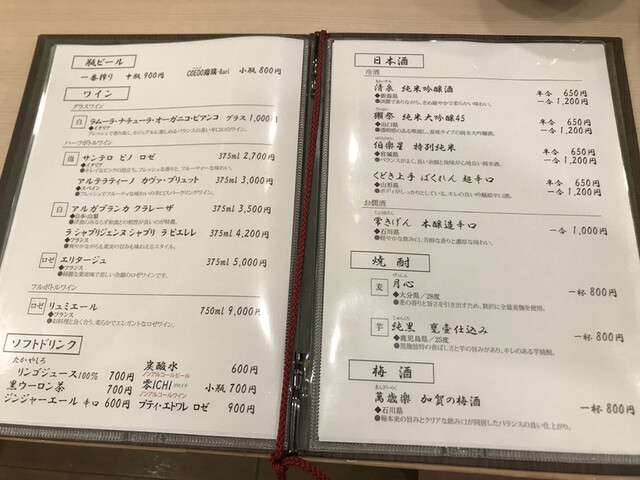 瓶ビール
一番搾り 中瓶 900円 COEDO瑠璃-Ruri 小瓶 800円
ワイン
グラスワイン
白 ラムーラ・ナチューラ・オーガニコ・ビアンコ グラス 1,000円
◆イタリア
ハーフボトルワイン
泡 サンテロ ピノ ロゼ 375ml 2,700円
◆イタリア
アルテラティーノ カヴァ・ブリュット 375ml 3,000円
◆スペイン
白 アルガブランカ クラレーザ 375ml 3,500円
◆日本・山梨
ラ シャブリジェンヌ シャブリ ラ ピエレレ 375ml 4,200円
◆フランス
ロゼ エリタージュ 375ml 5,000円
◆フランス
フルボトルワイン
ロゼ リュミエール 750ml 9,000円
◆フランス
●お料理と良く合う、柔らかでエレガントなロゼワイン。
ソフトドリンク
たかやしろ
リンゴジュース100% 700円
黒ウーロン茶 700円
ジンジャーエール 辛口 600円
炭酸水 600円
ノンアルコールビール
零ICHI 小瓶 700円
ノンアルコールワイン
プティ・エトワレ ロゼ 900円
日本酒
冷酒
清泉 純米吟醸酒 半合 650円
◆新潟県 一合 1,200円
獺祭 純米大吟醸45 半合 650円
◆山口県 一合 1,200円
伯楽星 特別純米 半合 650円
◆宮城県 一合 1,200円
くどき上手 ばくれん 超辛口 半合 650円
◆山形県 一合 1,200円
お燗酒
常きげん 本醸造辛口 一合 1,000円
◆石川県
焼酎
げっしん
麦 月心 一杯 800円
◆大分県/28度
●麦の香りと旨さを引き出すため、贅沢に全量麦麹を使用。
芋 純黒 甕壷仕込み 一杯 800円
◆鹿児島県/25度
梅酒
萬歳楽 加賀の梅酒 一杯 800円
◆石川県